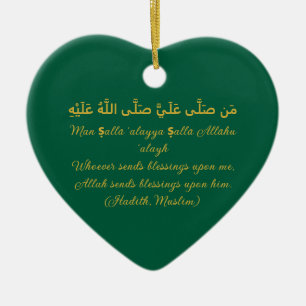 مَن صَلَّى عَلَيَّ صَلَّى اللَّهُ عَلَيْهِ
Man Ṣalla 'alayya Ṣalla Allāhu
'alayh
Whoever sends blessings upon me,
Allah sends blessings upon him.
(Hadith, Muslim)